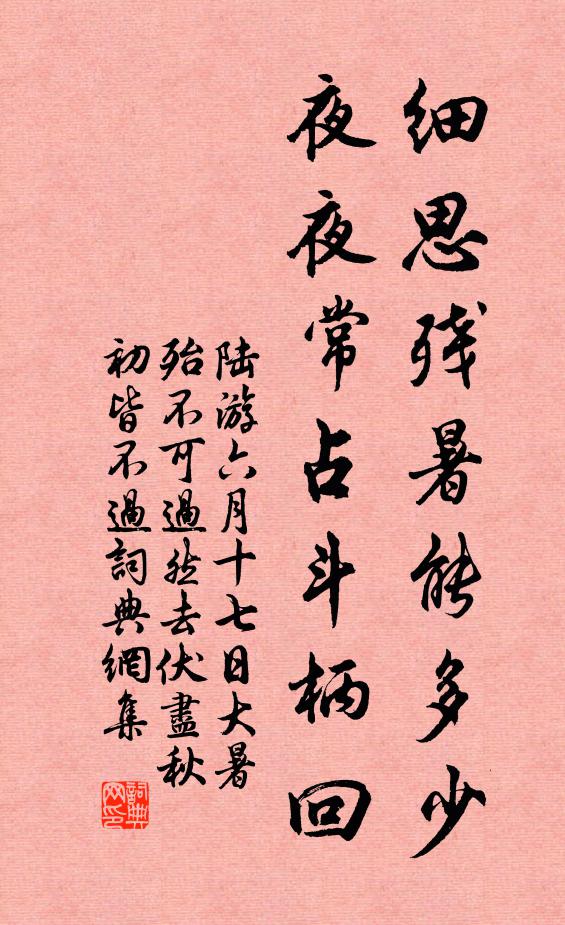 细思残暑能多少
夜夜常占斗柄回
陆游六月十七日大暑
殆不可過然去伏盡秋
初皆不過詞典網集
詞典
网印